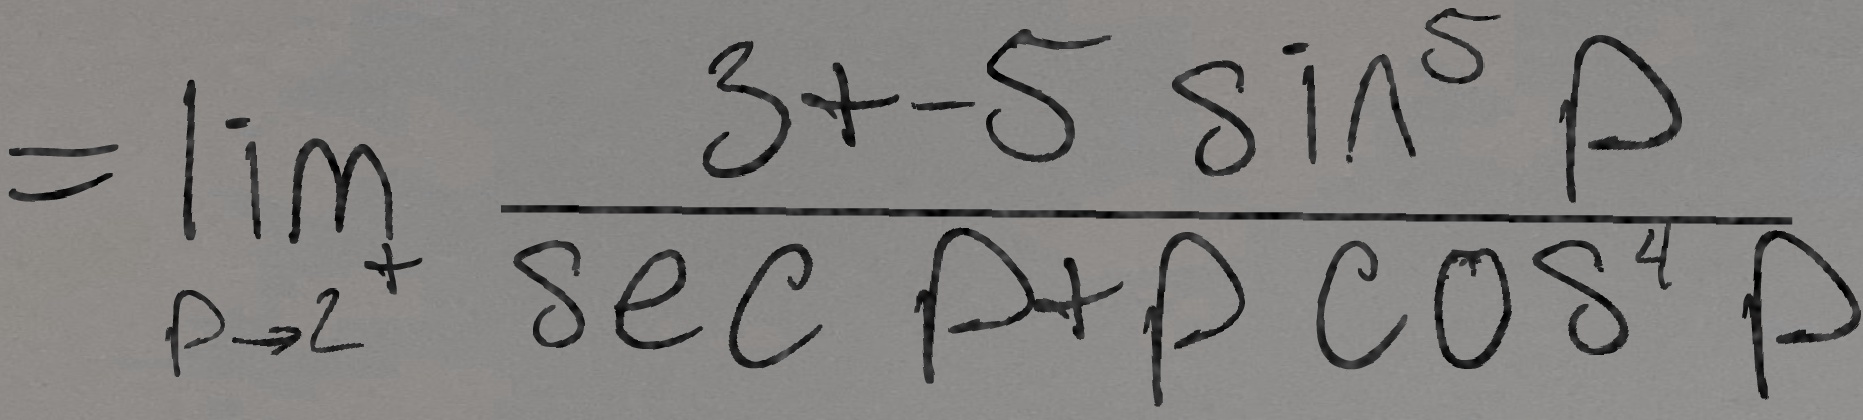 = \lim_{p \to 2^+} \frac{3 + -5 \sin^5 p}{\sec p + p \cos^4 p}